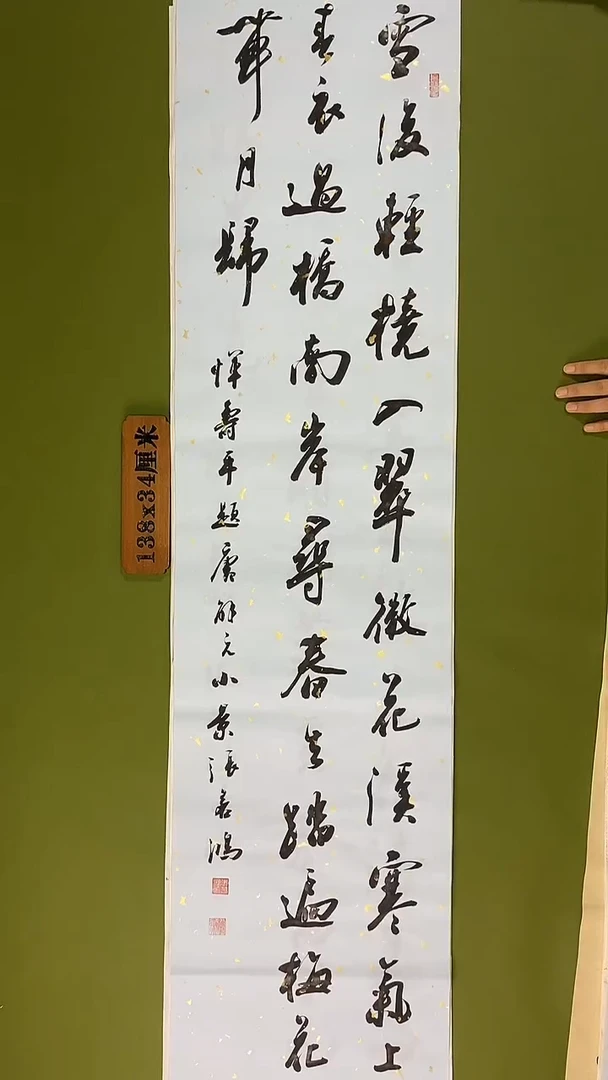 雪後輕橈入翠微花溪寒氣上
春衣過橋南岸尋春去踏遍梅花
帶月歸
惲壽平題唐解元小景張善鴻
138x34厘米